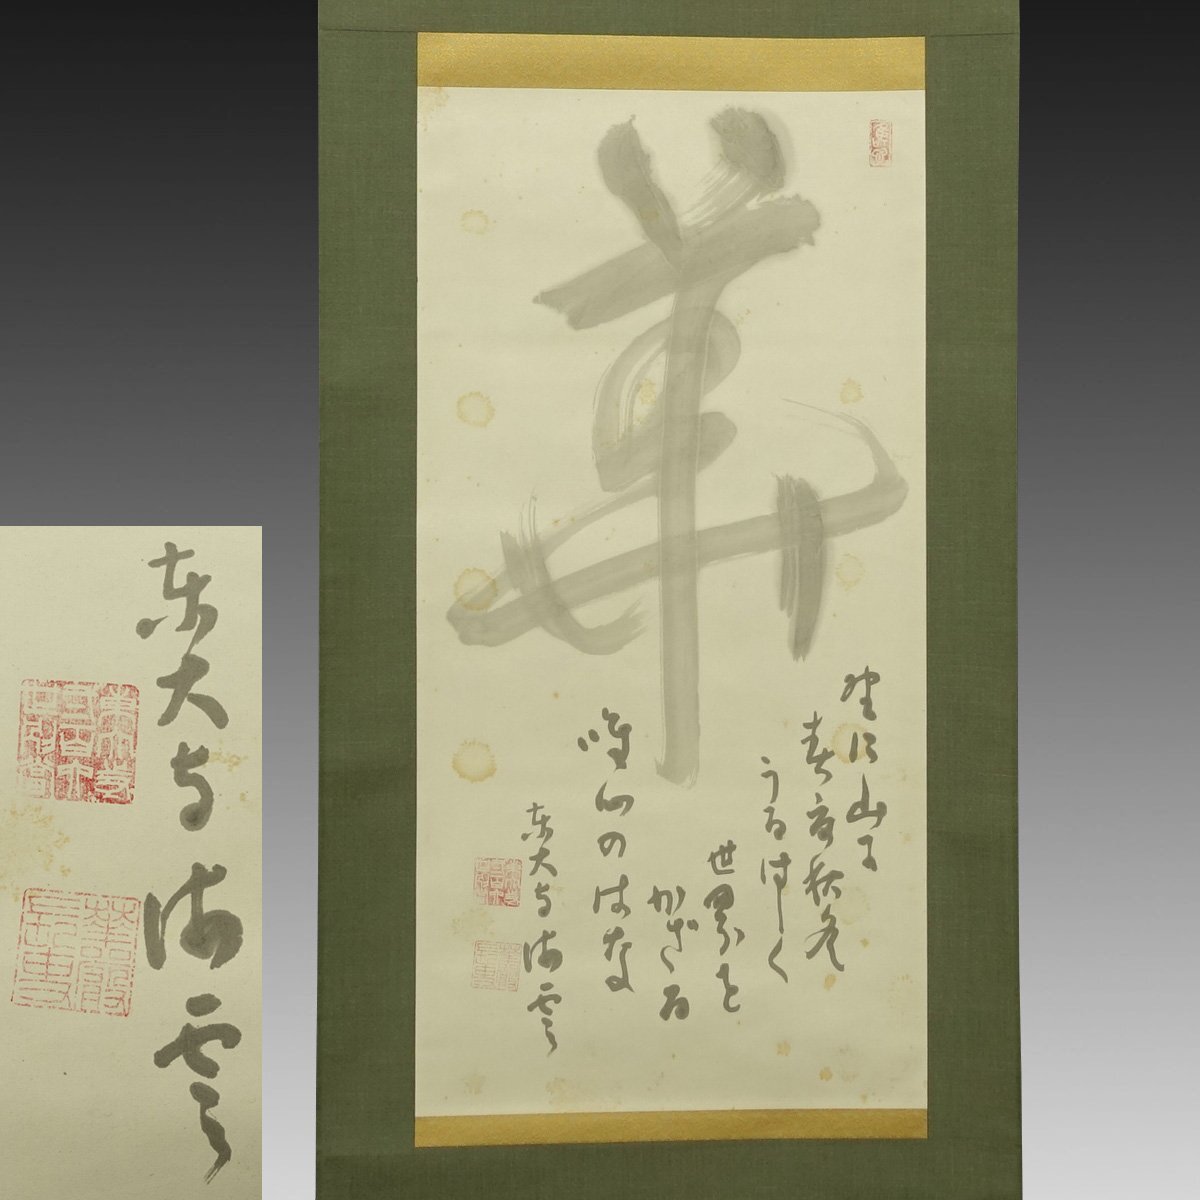 華
野に山に
春夏秋冬
うるはしく
世界を
かざる
唯心のはな
東大寺海雲
東大寺海雲